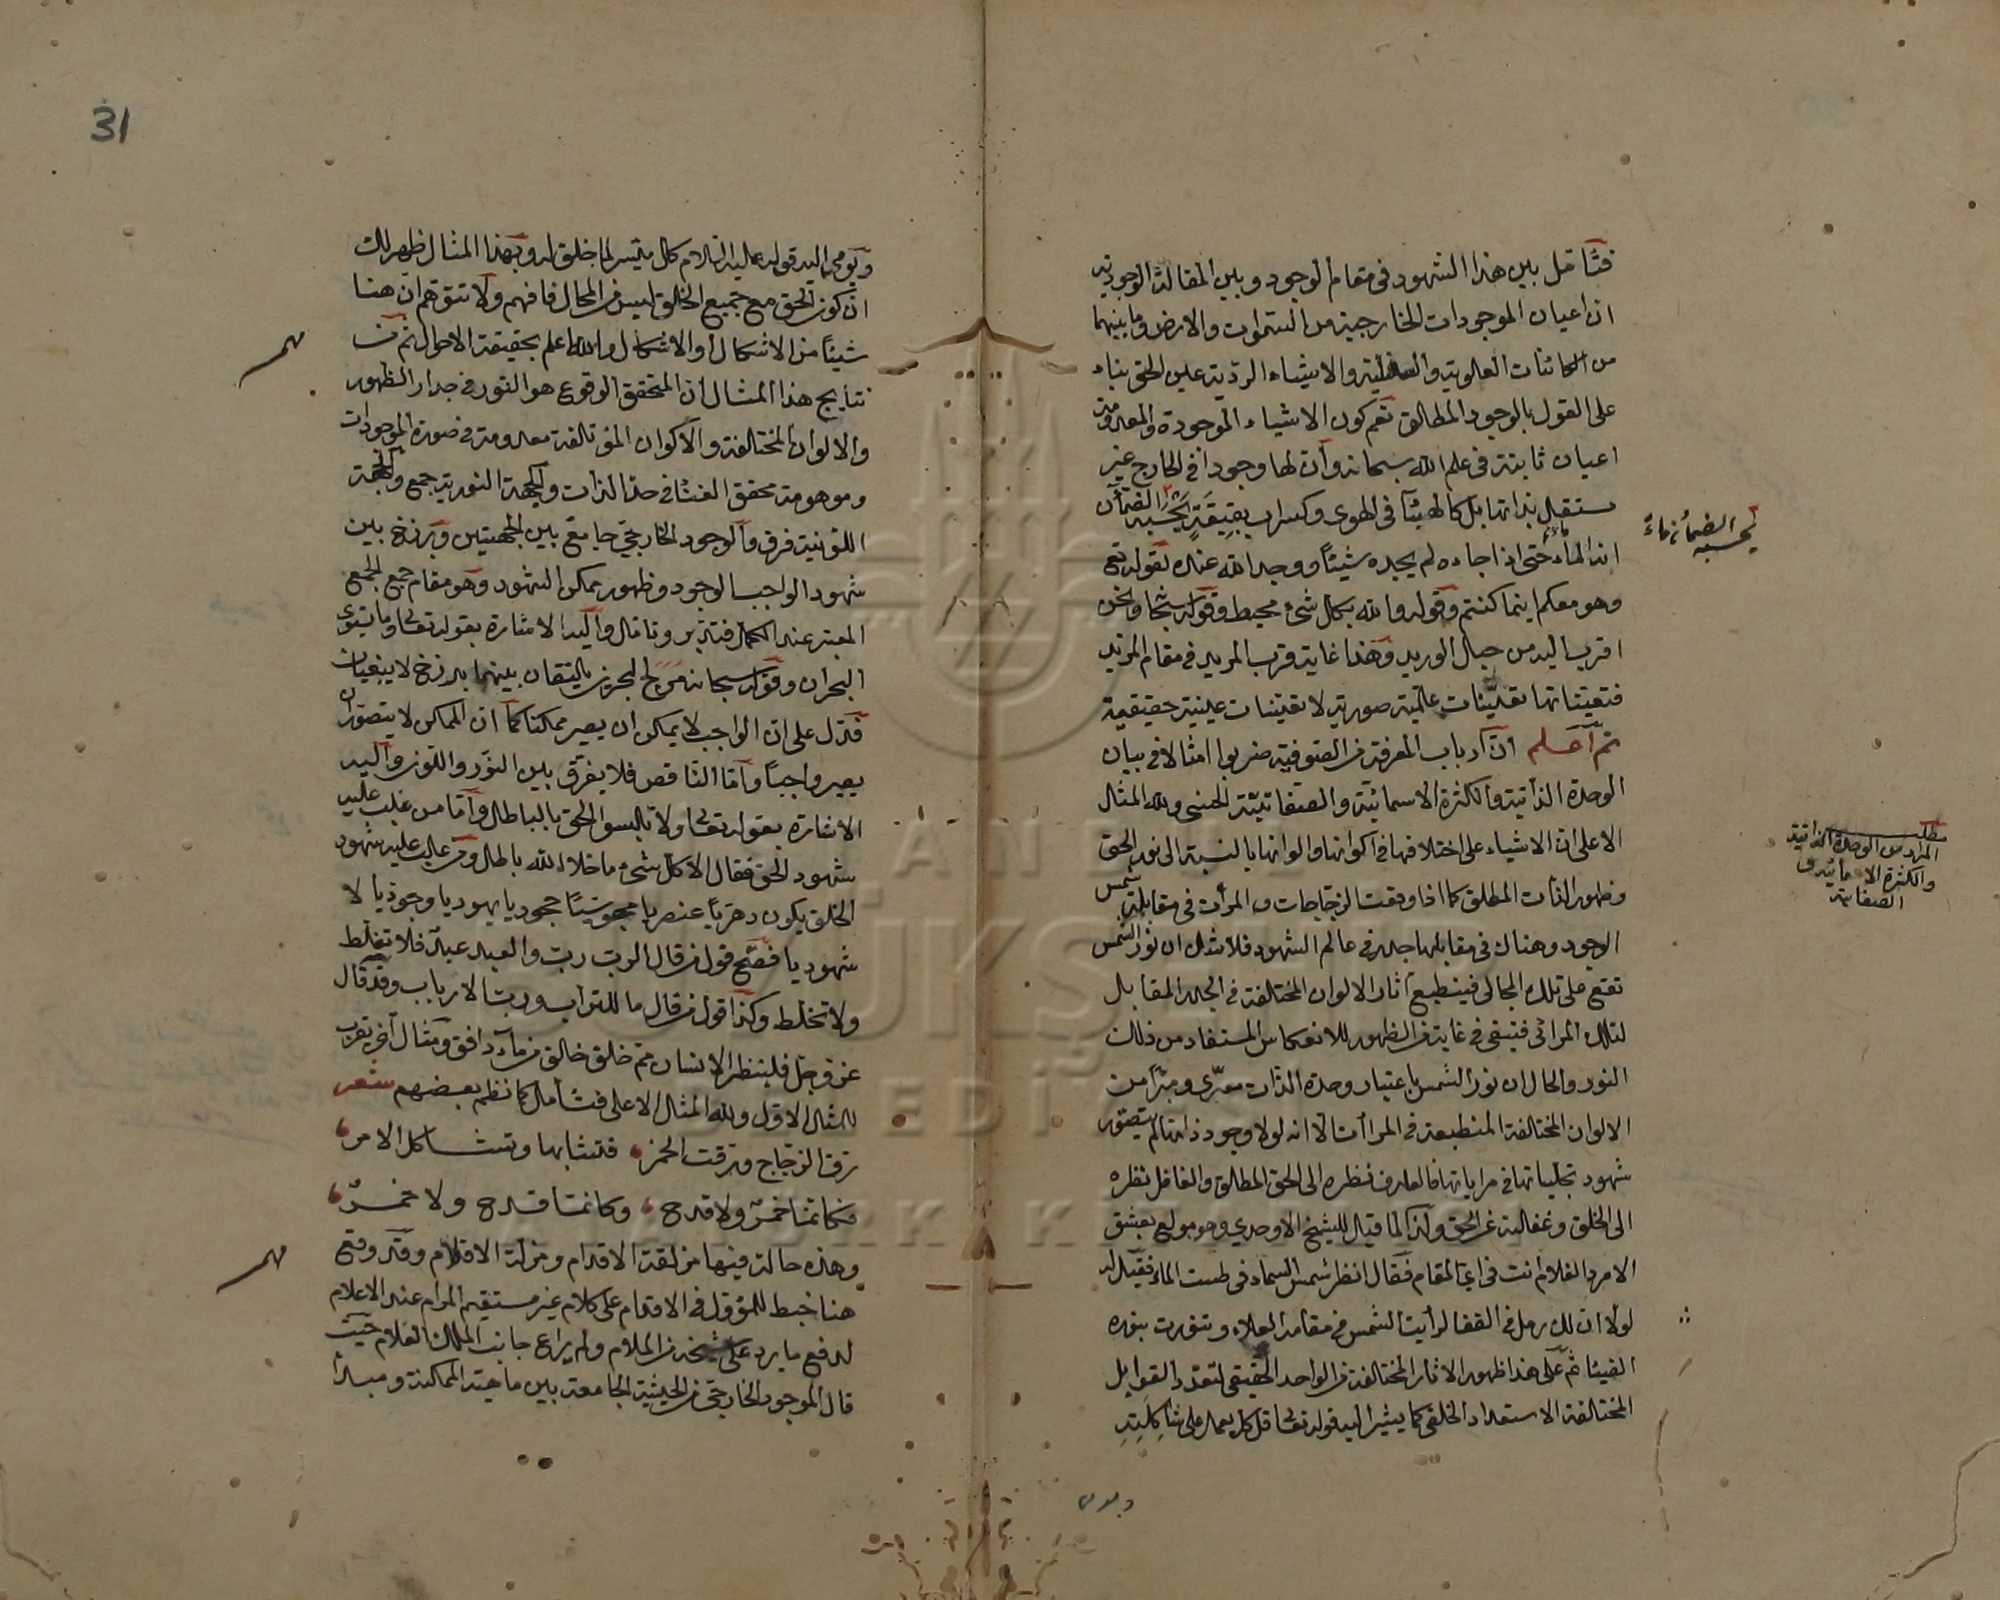 فتأمل بين هذا الشهود في مقام الوجود وبين المقالة الوجودية
ان اعيان الموجودات الخارجية من السموات والارض وما بينهما
من الكائنات العلوية والسفلية والاشياء الردية عين الحق بناء
على القول بالوجود المطلق نعم كون الاشياء الموجودة والمعدومة
اعيان ثابتة في علم الله سبحانه وأن لها وجودا في الخارج غير
مستقل بذاتها بل كالهبئآ في الهوى وكسراب بقيعة يحسبه الضمآن
انه الماء حتى اذا جاءه لم يجده شيئا ووجد الله عنده لقوله تع
وهو معكم اينما كنتم وقوله والله بكل شئ محيط وقوله سبحا ونحن
اقرب اليه من حبل الوريد وهذا غاية قرب المريد في مقام المزيد
فتعيناتها تعينات علمية صورية لا تعينات عينية حقيقية
ثم اعلم ان ارباب المعرفة من الصوفية ضربوا امثالا في بيان
الوحدة الذاتية والكثرة الاسمائية والصفاتية الحسنى ولله المثل
الاعلى ان الاشياء على اختلافها في اكوانها والوانها بالنسبة الى نور الحق
وظهور الذات المطلق كما اذا وقعت الزجاجات والمرأت في مقابلة شمس
الوجود وهناك في مقابلها جدر في عالم الشهود فلا شك ان نور الشمس
تقع على تلك المجالى فينطبع آثار الالوان المختلفة في الجدر المقابل
لتلك المرائى فتبقى في غاية من الظهور للانعكاس المستفاد من ذلك
النور والحال ان نور الشمس باعتبار وحدة الذات معرى ومبرا من
الالوان المختلفة المنطبعة في المرأت الا انه لولا وجود ذاتها لم يتصور
شهود تجلياتها في مراياتها فالعارف نظره الى الحق المطلق والغافل نظره
الى الخلق وغفلته عن الحق ولذا لما قيل للشيخ الاوحدي وهو مولع بعشق
الامرد الغلام انت في اي المقام فقال انظر شمس السماء في طست الماء فقيل له
لولا ان لك رمل في القفا لرأيت الشمس في مقامه العلاء وتنورت بنوره
ثم على هذا ظهور الاثار المختلفة من الواحد الحقيقي لتعدد القوابل
المختلفة الاستعداد الخلقى كما يشير اليه قوله تعا قل كل يعمل على شاكلته
يحسبه الضمان ماء
مطلب
المراد من الوحدة الذاتية
والكثرة الاسمائية و
الصفاتية
31
ويومى اليه قوله عليه السلام كل ميسر لما خلق له وبهذا المثال ظهر لك
ان كون الحق مع جميع الخلق ليس من المحال فافهم ولا تتوهم ان هنا
شيئا من الاشكال او الاشكال والله اعلم بحقيقة الاحوال ثم من
نتايج هذا المثال ان المتحقق الوقوع هو النور في جدار الظهور
والالوان المختلفة والاكوان المؤتلفة معدومة في صورة الموجودات
وموهومة محقق الفنا في حد الذات والجهة النورية جمع والجهة
اللونية فرق والوجود الخارجي جامع بين الجهتين وبرزخ بين
شهود الواجب الوجود وظهور ممكن الشهود وهو مقام جمع الجمع
المعتبر عند الكمل فتدبر وتأمل واليه الاشارة بقوله تعالى وما يستوى
البحران وقوله سبحانه مرج البحرين يلتقيان بينهما برزخ لا يبغيان
فدل على ان الواجب لا يمكن ان يصير ممكنا كما ان الممكن لا يتصور ان
يصير واجبا وأما الناقص فلا يفرق بين النور واللون واليه
الاشارة بقوله تعالى ولا تلبسوا الحق بالباطل وأما من غلب عليه
شهود الحق فقال الا كل شئ ما خلا الله باطل ومن غلب عليه شهود
الخلق يكون دهريا عنصريا مجوسيا جحوديا يهوديا وجوديا لا
شهوديا فصح قول من قال الرب رب والعبد عبد فلا تغلط
ولا تخلط وكذا قول من قال ما للتراب ورب الارباب وقد قال
عز وجل فلينظر الانسان مم خلق خلق من ماء دافق ومثال آخر يقرب
للمثال الاول ولله المثل الاعلى فتأمل كما نظم بعضهم شعر
رق الزجاج ورقت الخمر فتشابها وتشاكل الامر
فكانما خمر ولا قدح وكانما قدح ولا خمر
وهذه حالة فيها مزلقة الاقدام ومزلة الاقلام وقد وقع
هنا خبط للمؤول في الاقدام على كلام غير مستقيم المرام عند الاعلام
لدفع ما يرد على شيخه من الملام ولم يراع جانب الملك العلام حيث
قال الموجود الخارجي من الحيثية الجامعة بين ماهيته الممكنة ومبدأ